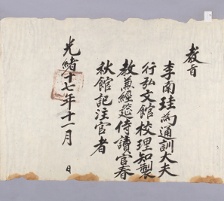 敎旨
李南珪爲通訓大夫
行弘文館校理知製
敎兼經筵侍讀官春
秋館記注官者
光緖十七年十一月 日